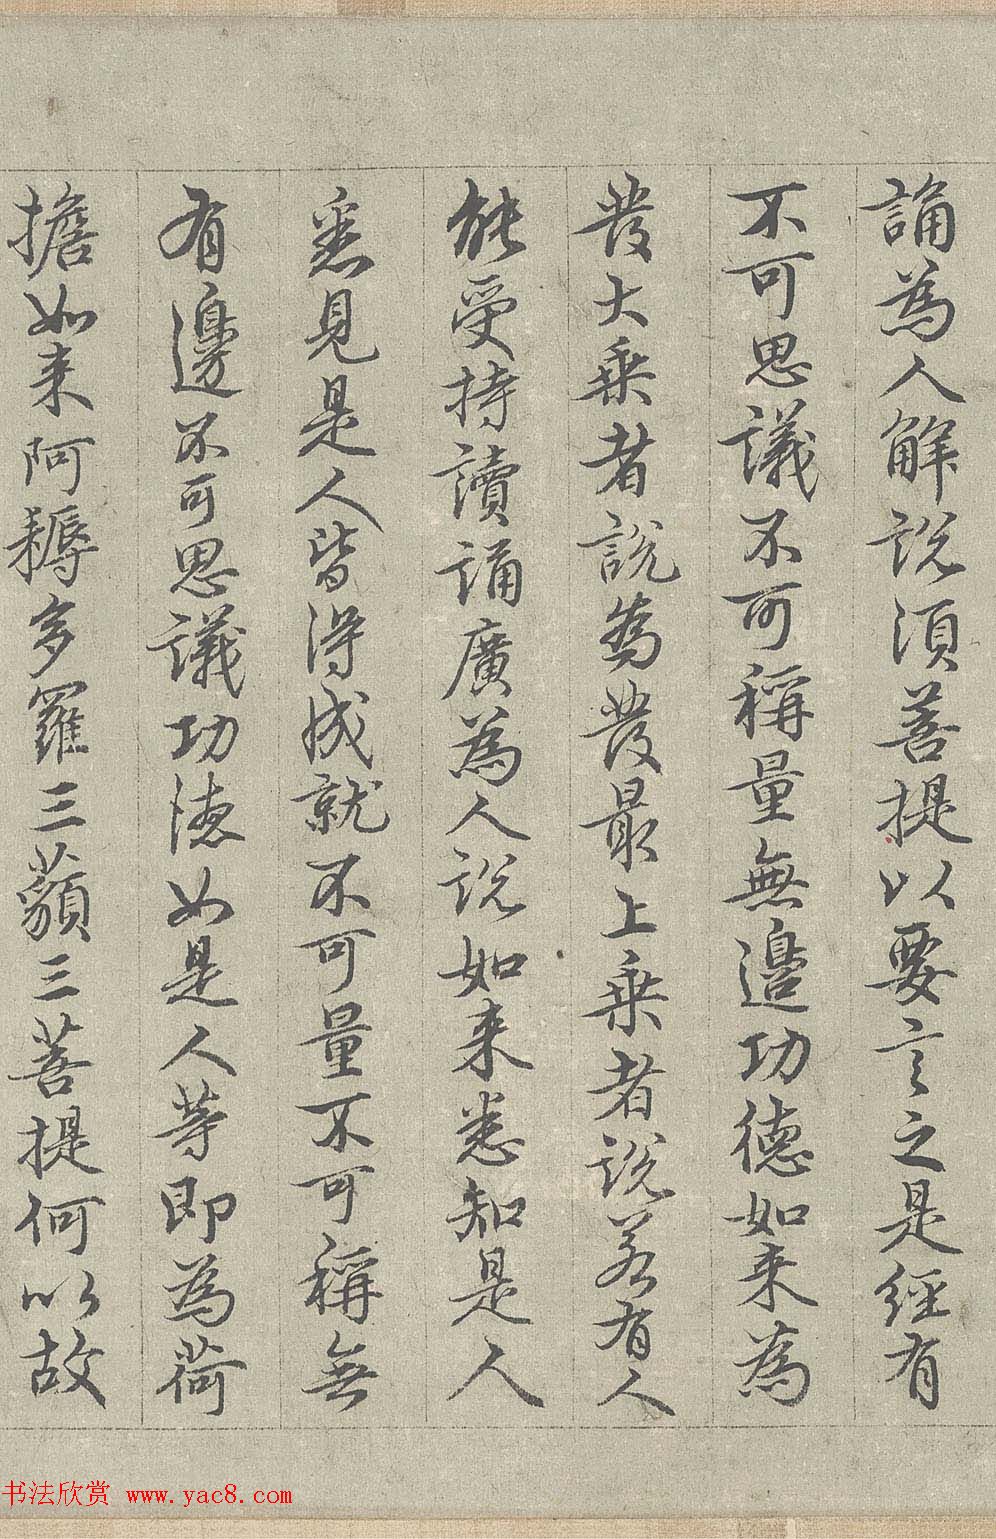 誦為人解說須菩提以要言之是經有
不可思議不可稱量無邊功德如來為
發大乘者說為發最上乘者說若有人
能受持讀誦廣為人說如來悉知是人
悉見是人皆得成就不可量不可稱無
有邊不可思議功德如是人等即為荷
擔如来阿耨多羅三藐三菩提何以故
书法欣赏 www.yac8.com